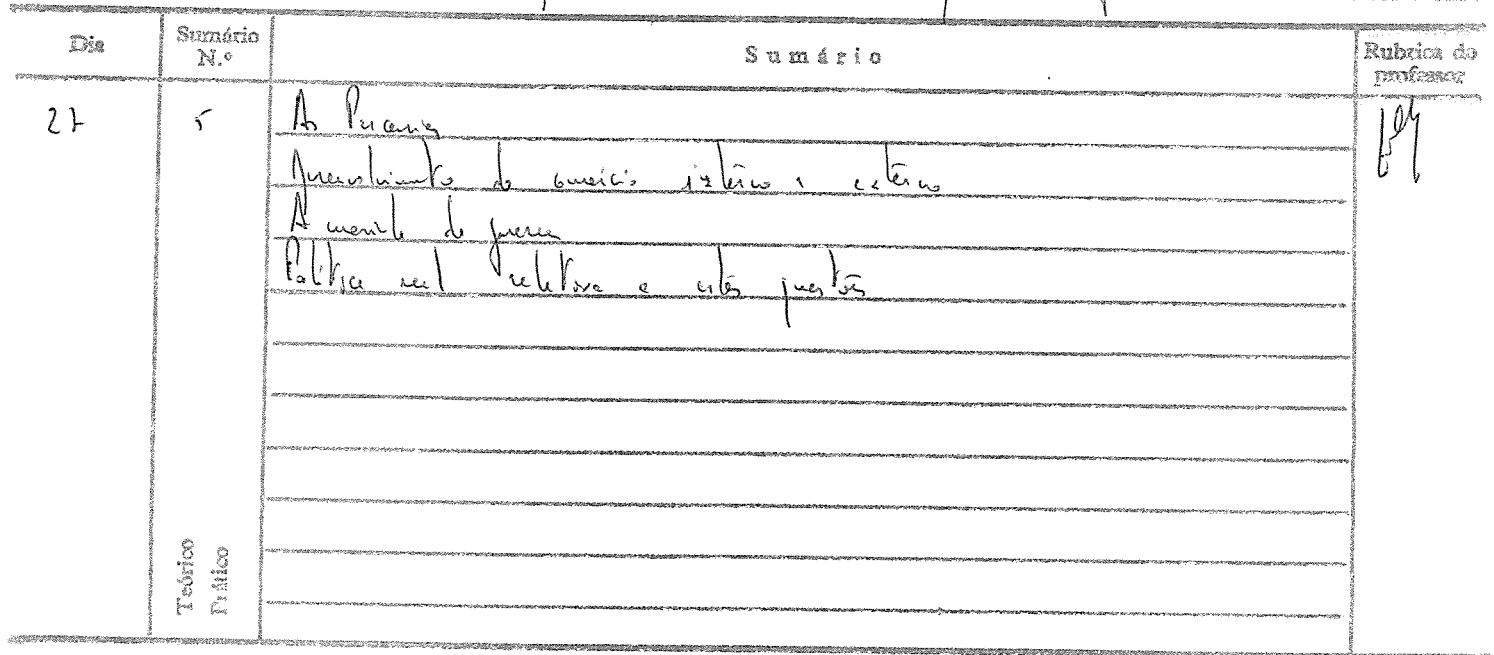 Dia
Sumário N.º
Sumário
Rubrica do professor
27
5
As
Desenvolvimento do comércio interno e externo
A de
Política real relativa a estas questões
Teórico
Prático